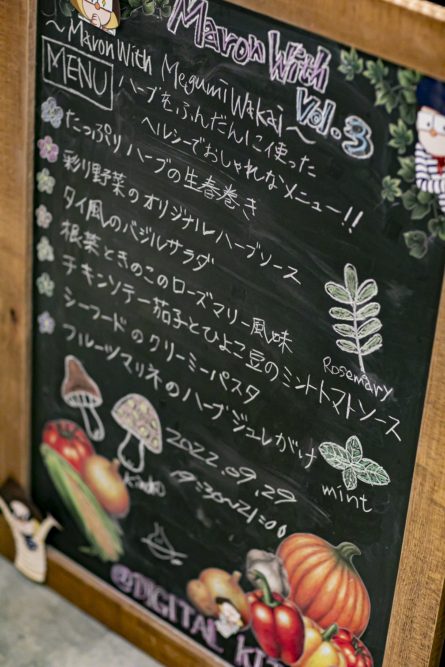 Maron With
Vol.3
~Maron With Megumi Wakai~
MENU
ハーブをふんだんに使った
ヘルシーでおしゃれなメニュー!!
たっぷりハーブの生春巻き
彩り野菜のオリジナルハーブソース
タイ風のバジルサラダ
根菜ときのこのローズマリー風味
チキンソテー茄子とひよこ豆のミントトマトソース
シーフードのクリーミーパスタ
フルーツマリネのハーブジュレがけ
Rosemary
mint
kinoko
2022.09.29
@DIGITAL